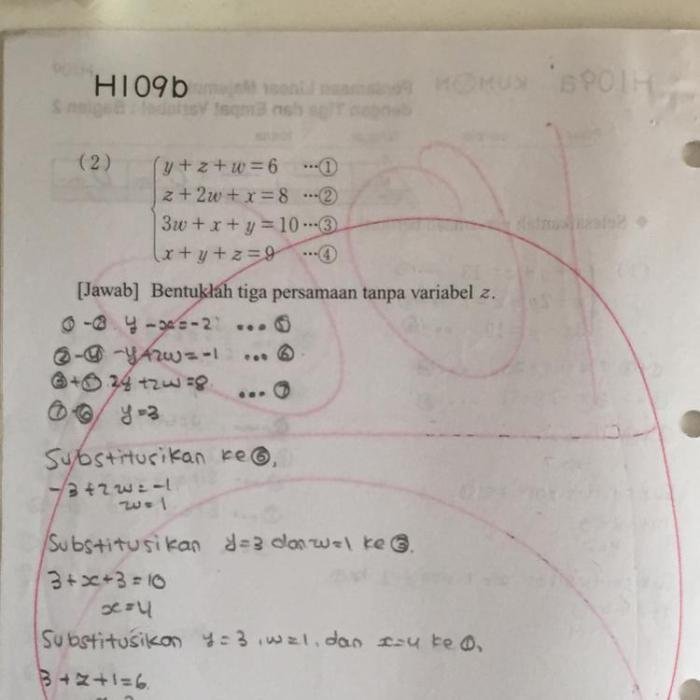 H109b
(2) y + z + w = 6 …①
z + 2w + x = 8 …②
3w + x + y = 10 …③
x + y + z = 9 …④
[Jawab] Bentuklah tiga persamaan tanpa variabel z.
①-②. y -x=-2 ...⑤
②-④ -y+2w=-1 ...⑥
③+⑤ 2y+2w=8 ...⑦
⑦-⑥ y=3
Substitusikan ke ⑥,
-3+2w=-1
w=1
Substitusikan y=3 dan w=1 ke ③.
3+x+3=10
x=4
Substitusikan y=3, w=1, dan x=4 ke ①,
3+z+1=6